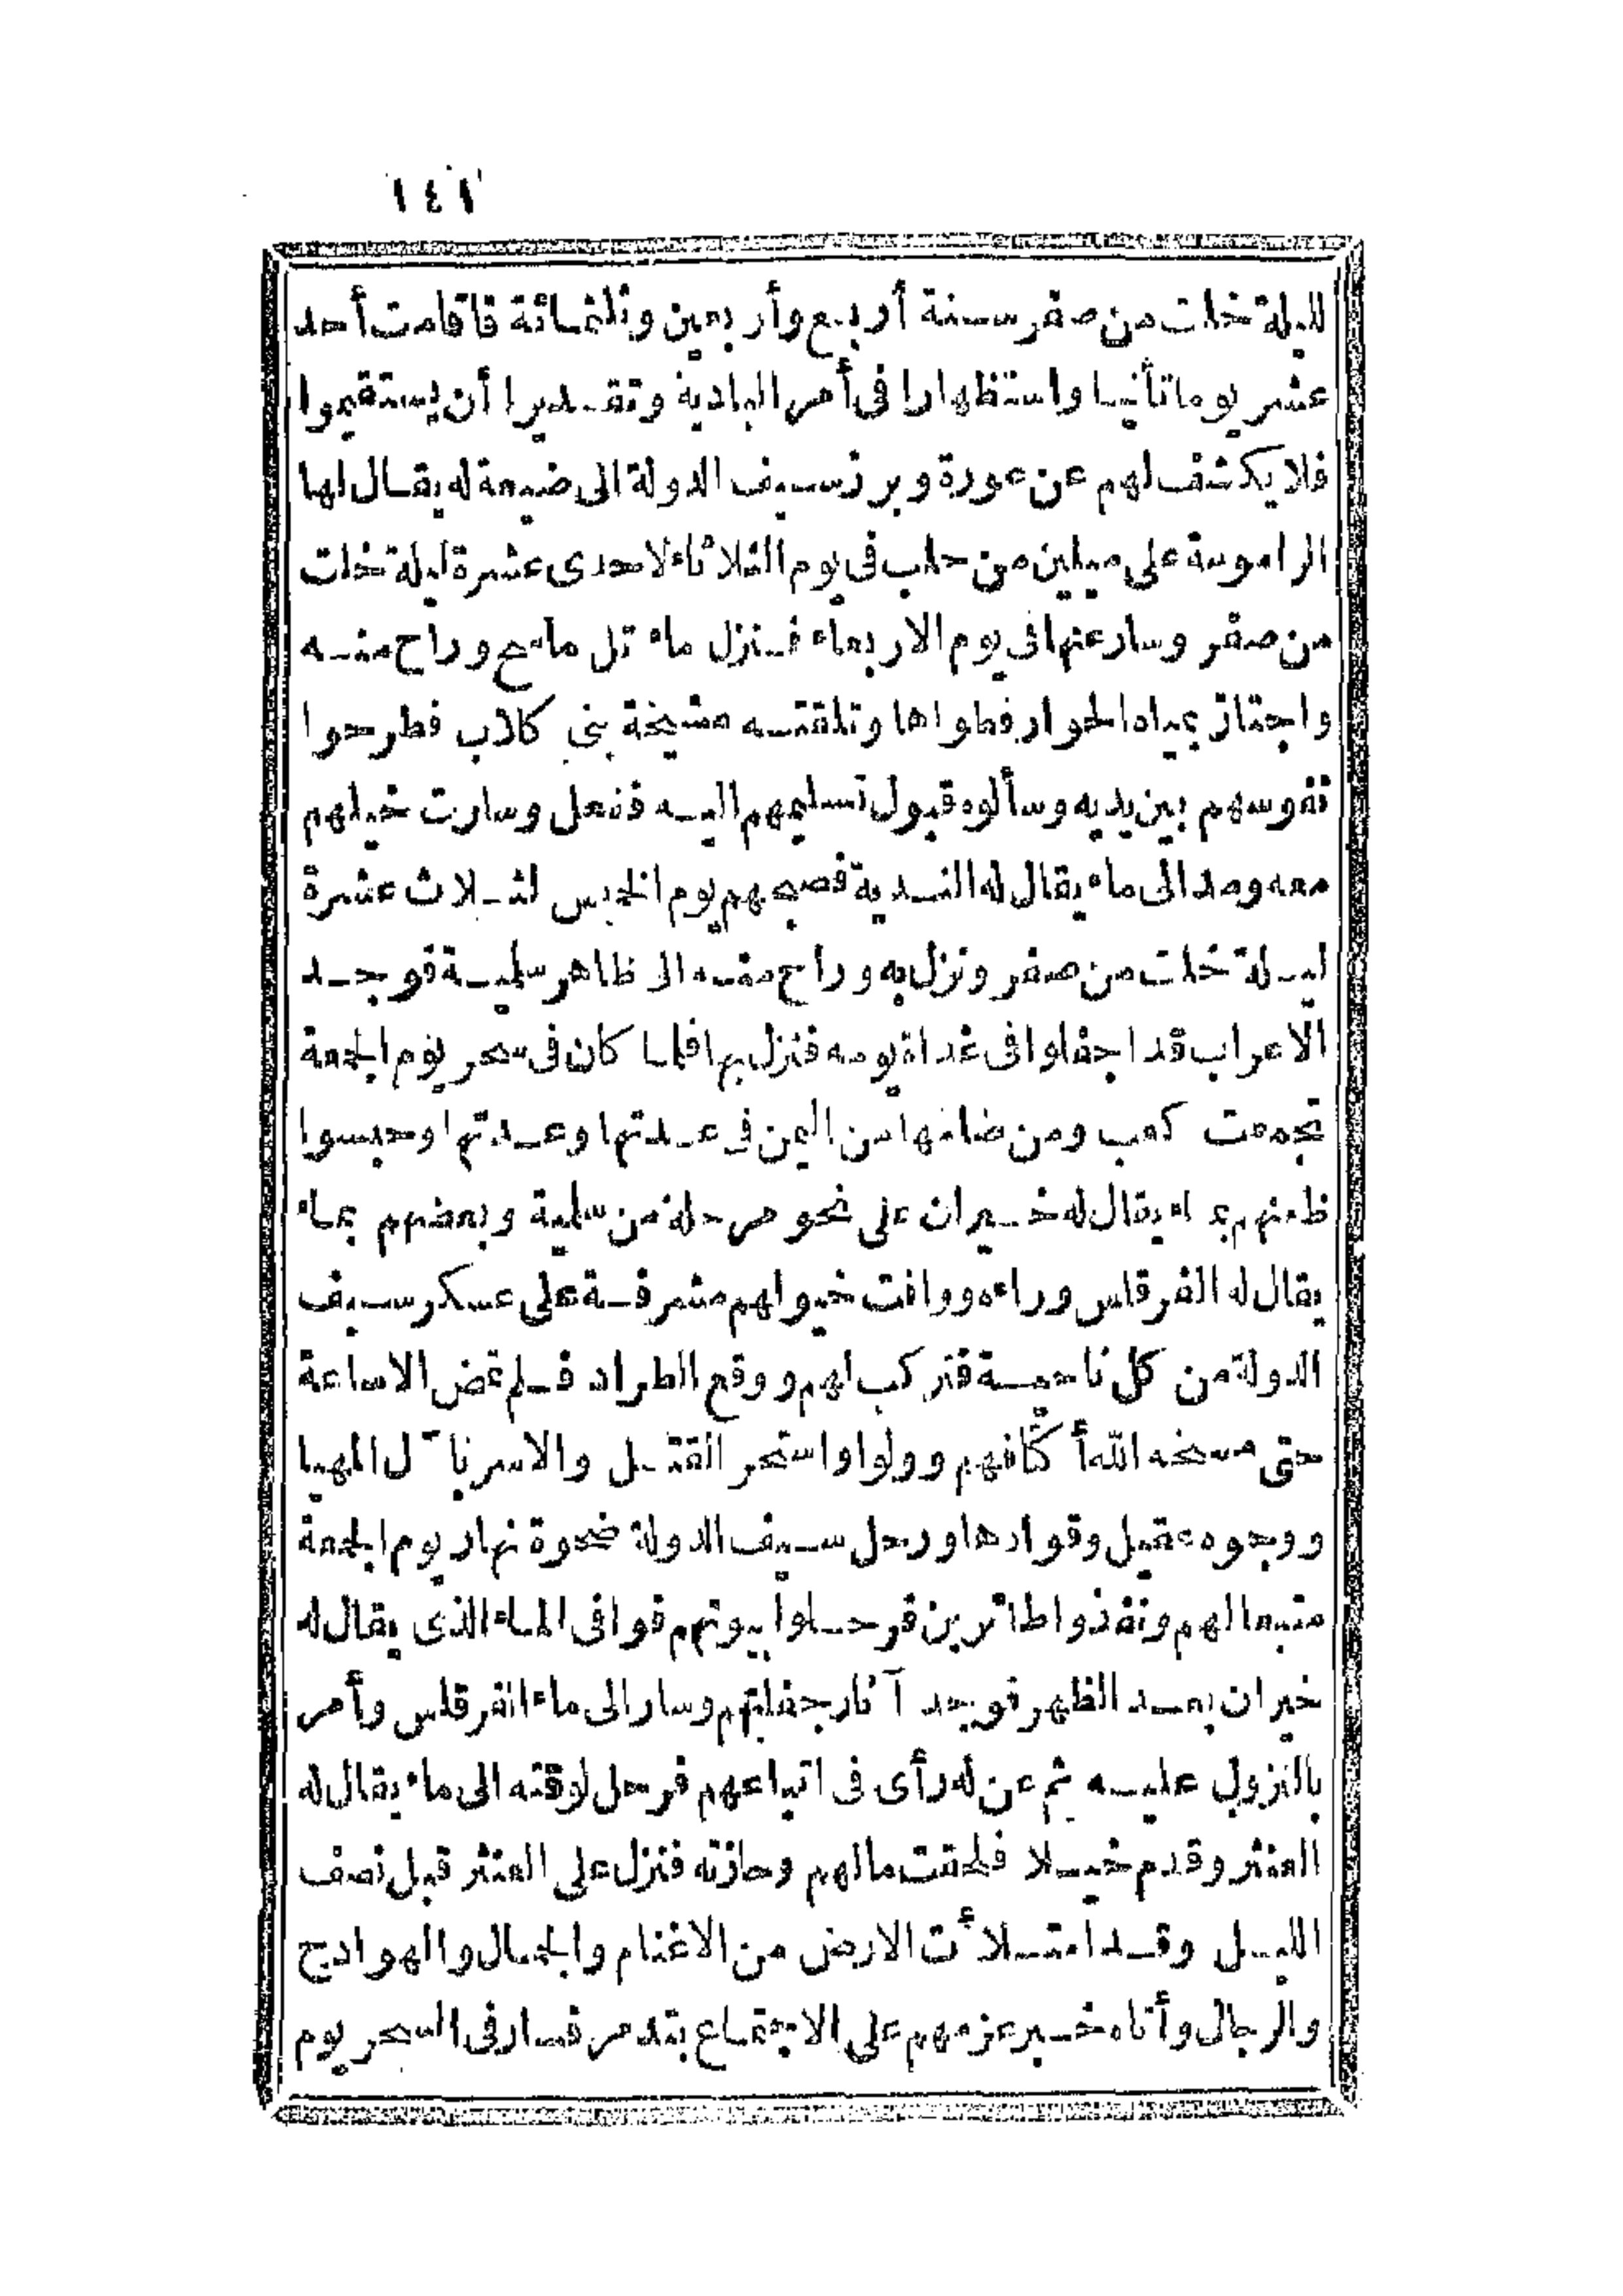 ١٤١
لليلة خلت من صفر سنة أربع وأربعين وثلثمائة فاقامت أحد
عشر يوما تأنيا واستظهارا فى أمر البادية وتقديرا أن يستقيموا
فلا يكشف لهم عن عورة وبرز سيف الدولة الى ضيعة له يقال لها
الراموسة على ميلين من حلب فى يوم الثلاثاء لاحدى عشرة ليلة خلت
من صفر وسار عنها فى يوم الاربعاء فنزل ماء تل ماسح وراح منه
واجتاز بمياه الحوار فطواها وتلقته مشيخة بنى كلاب فطرحوا
نفوسهم بين يديه وسألوه قبول تسليمهم اليه ففعل وسارت خيلهم
معه ومد الى ماء يقال له البدية فصبحهم يوم الخميس لثلاث عشرة
ليلة خلت من صفر ونزل به وراح منه الى ظاهر سلمية فوجد
الاعراب قد اجفلوا فى غداة يومه فنزل بها فلما كان فى سحر يوم الجمعة
تجمعت كعب ومن ضامها من اليمن فى عدتها وعدتها وحبسوا
ظعنهم بماء يقال له خيران على نحو مرحلة من سلمية وبعضهم بماء
يقال له الفرقلس وراءه ووافت خيولهم مشرفة على عسكر سيف
الدولة من كل ناحية فتركب لهم ووقع الطراد فلم تمض الا ساعة
حتى منحه الله أكتافهم وولوا واستحر القتل والاسر بآل المهيا
ووجوه عقيل وقوادها ورحل سيف الدولة ضحوة نهار يوم الجمعة
متبعا لهم ونفذوا طائرين فرحلوا بيوتهم فوافى الماء الذى يقال له
خيران بعد الظهر فوجد آثار جفلتهم وسار الى ماء الفرقلس وأمر
بالنزول عليه ثم عن له رأى فى اتباعهم فرحل لوقته الى ماء يقال له
العنثر وقدم خيلا فلحقت مالهم وحازته فنزل على العنثر قبل نصف
الليل وقد امتلأت الارض من الاغنام والجمال والهوادج
والرجال وأتاه خبر عزمهم على الاجتماع بتدمر فسار فى السحر يوم